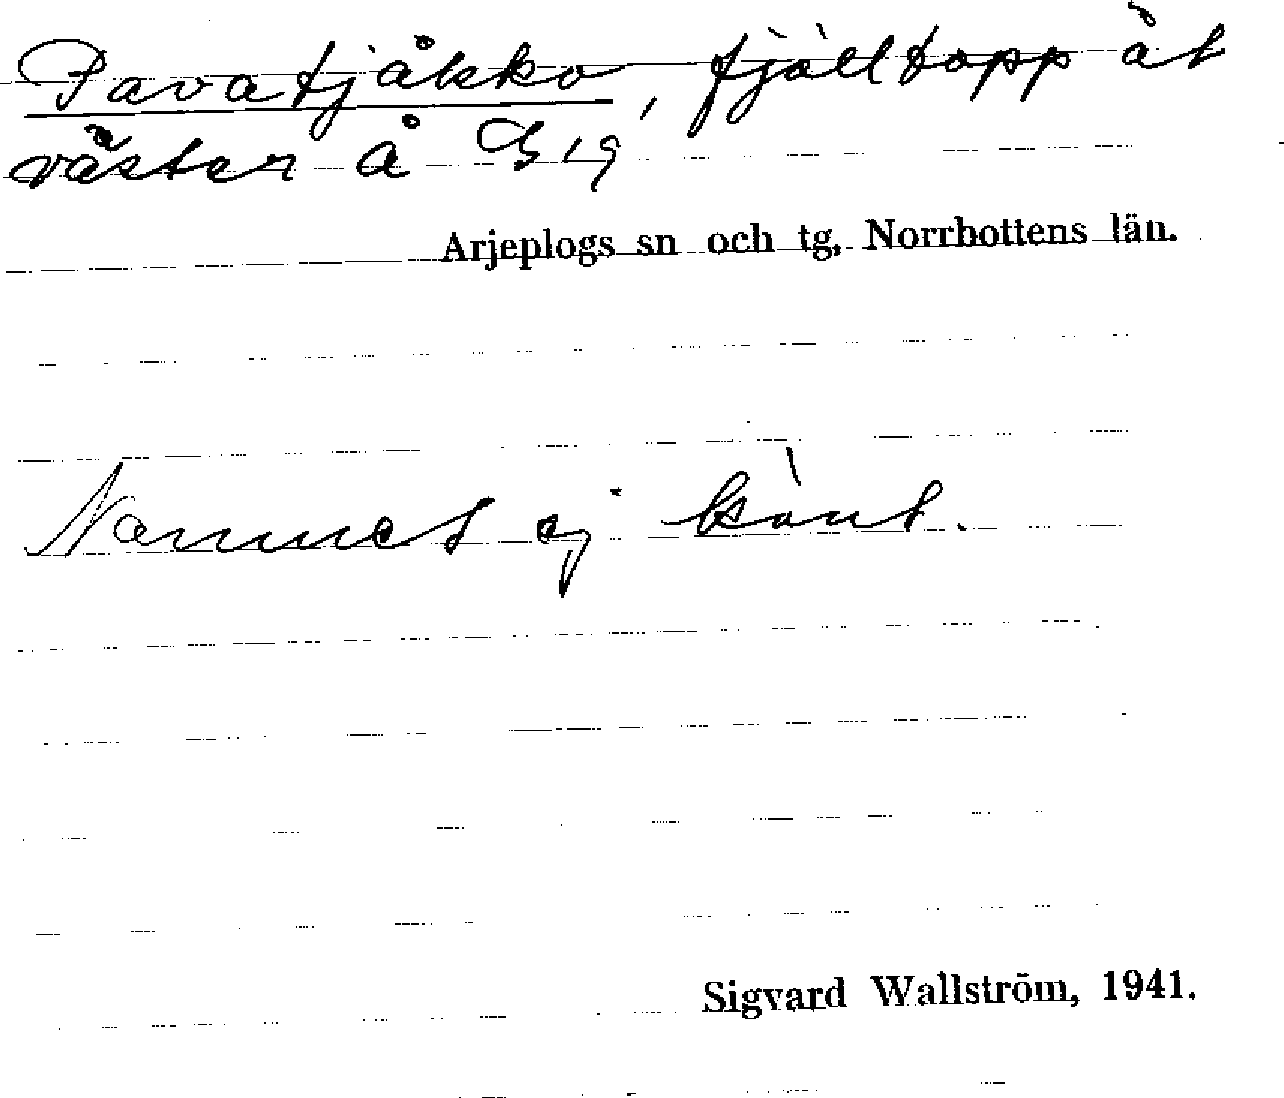 Pavatjåkko, fjälltopp åt
väster å G 19
Arjeplogs sn och tg, Norrbottens län.
Namnet ej känt.
Sigvard Wallström, 1941.